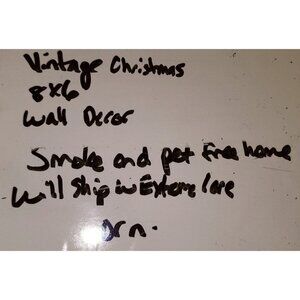 Vintage Christmas
8x6
Wall Decor
Smoke and pet free home
Will Ship in Extreme Care